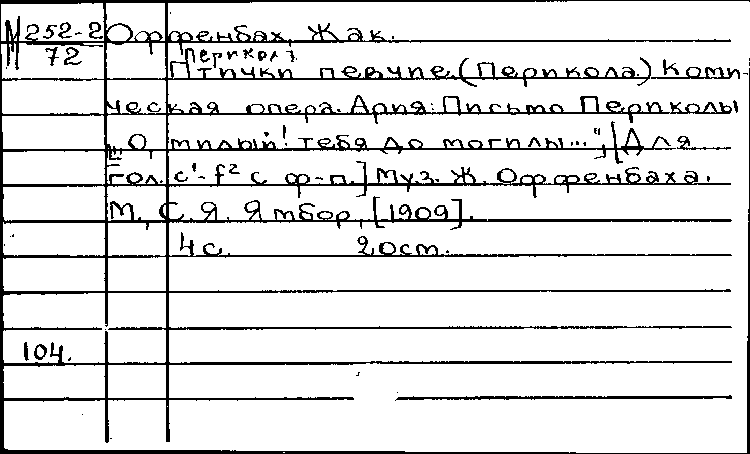 М 252-2 Оффенбах, Жак.
72 Перикола
Птички певчие. (Перикола.) Коми-
ческая опера. Ария: Письмо Периколы
„О, милый! тебя до могилы...", [Для
гол. c¹-f² с ф-п.] Муз. Ж. Оффенбаха.
М., С. Я. Ямбор, [1909].
4 с. 2 ост.
104.